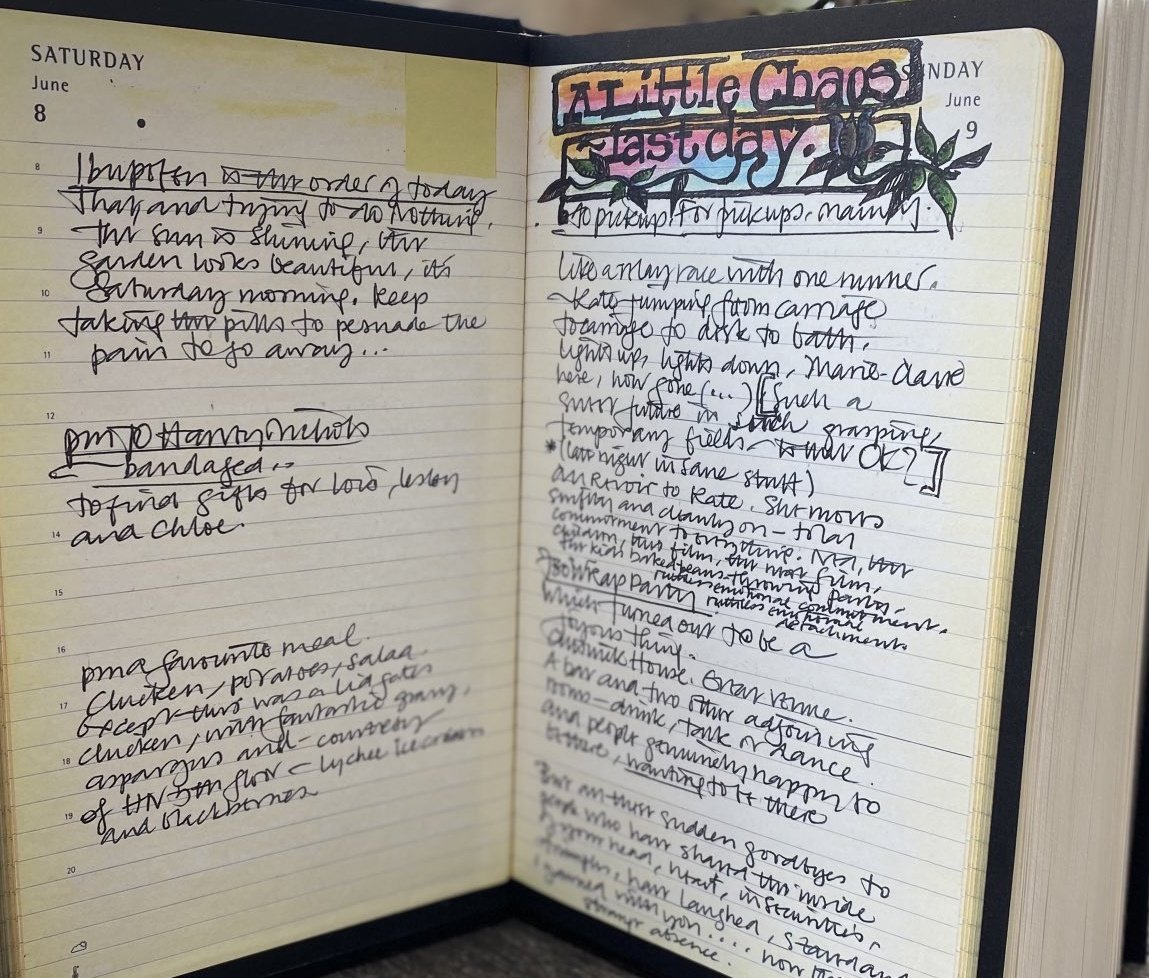 SATURDAY
June
8
8
Ibuprofen is the order of today
That, and trying to do nothing.
9
The sun is shining, the
garden looks beautiful, it's
10
Saturday morning. Keep
taking the pills to persuade the
11
pain to go away...
12
pm To Harvey Nichols
bandaged..
to find gifts for Lois, Lesley
14
and Chloe.
15
16
pm a favourite meal.
Chicken, potatoes, salad
17
except this was a Lidgates
chicken, with fantastic gravy,
18
asparagus and - courtesy
of the 5th floor - lychee ice cream
19
and blackberries
20
SUNDAY
June
9
A Little Chaos
last day.
To pickup! For pickups, mainly.
Like a relay race with one runner.
Kate jumping from carriage
to carriage to desk to bath.
Lights up, lights down, Marie-Claire
here, now gone (...) [Such a
future in such grasping,
temporary fields - is that OK?]
*(late night insane stuff)
Au Revoir to Kate. She moves
swiftly and cleanly on - total
commitment to everything. Ned, the
children, this film, the next film,
the kids baked beans throwing party.
ruthless emotional commitment.
ruthless emotional
detachment.
To Wrap Party
which turned out to be a
joyous thing.
Chiswick House. Great venue.
A bar and two other adjoining
rooms - drink, talk or dance.
and people genuinely happy to
be there, wanting to be there
But all these sudden goodbyes to
people who have shared the inside
of your head, heart, insecurities,
triumphs, have laughed, stared and
yawned with you .... now the
strange absence.